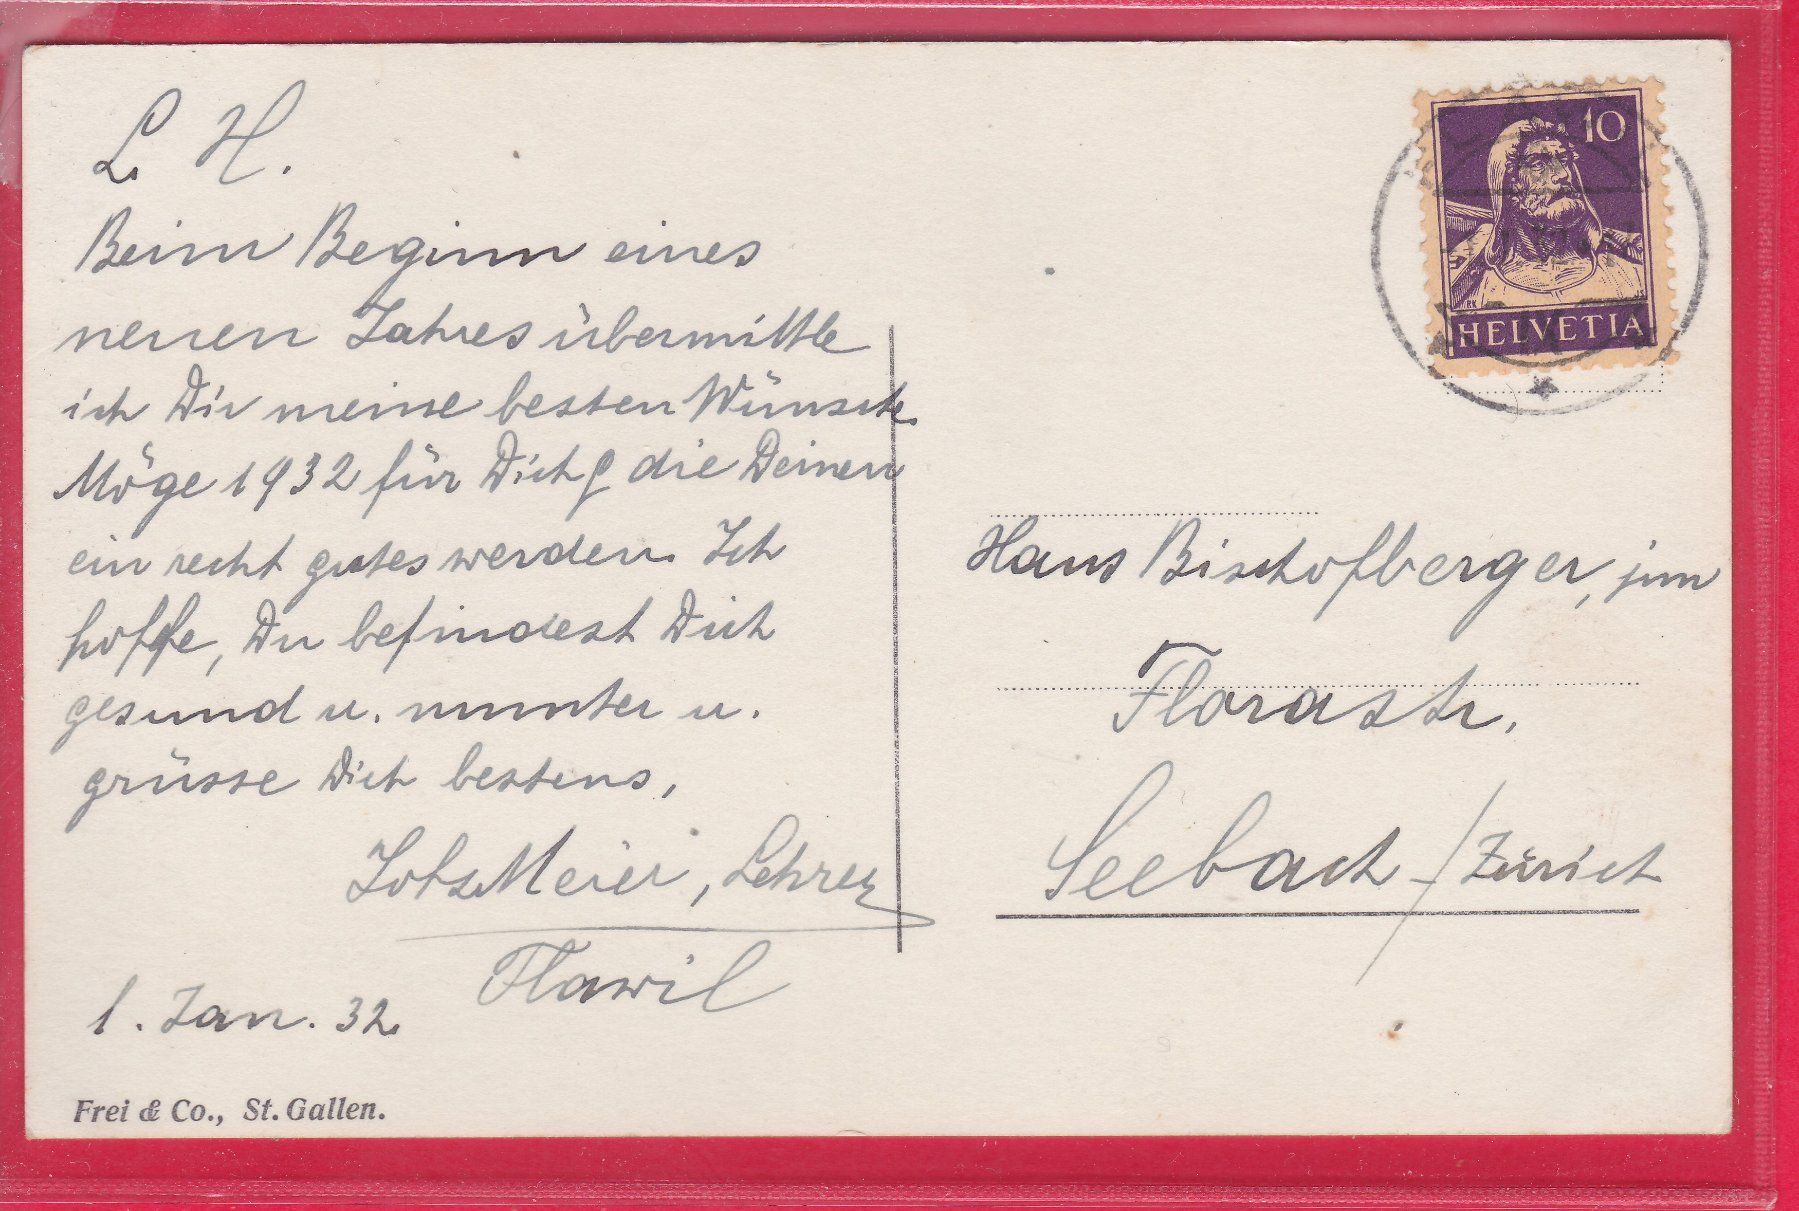 L. H.
Beim Beginn eines
neuen Jahres übermittle
ich Dir meine besten Wünsche.
Möge 1932 für Dich & die Deinen
ein recht gutes werden. Ich
hoffe, Du befindest Dich
gesund u. munter u.
grüsse Dich bestens,
Johs Meier, Lehrer
Flawil
1. Jan. 32.
Frei & Co., St. Gallen.
10
HELVETIA
Hans Bischofberger, jun
Florastr.
Seebach / Zürich